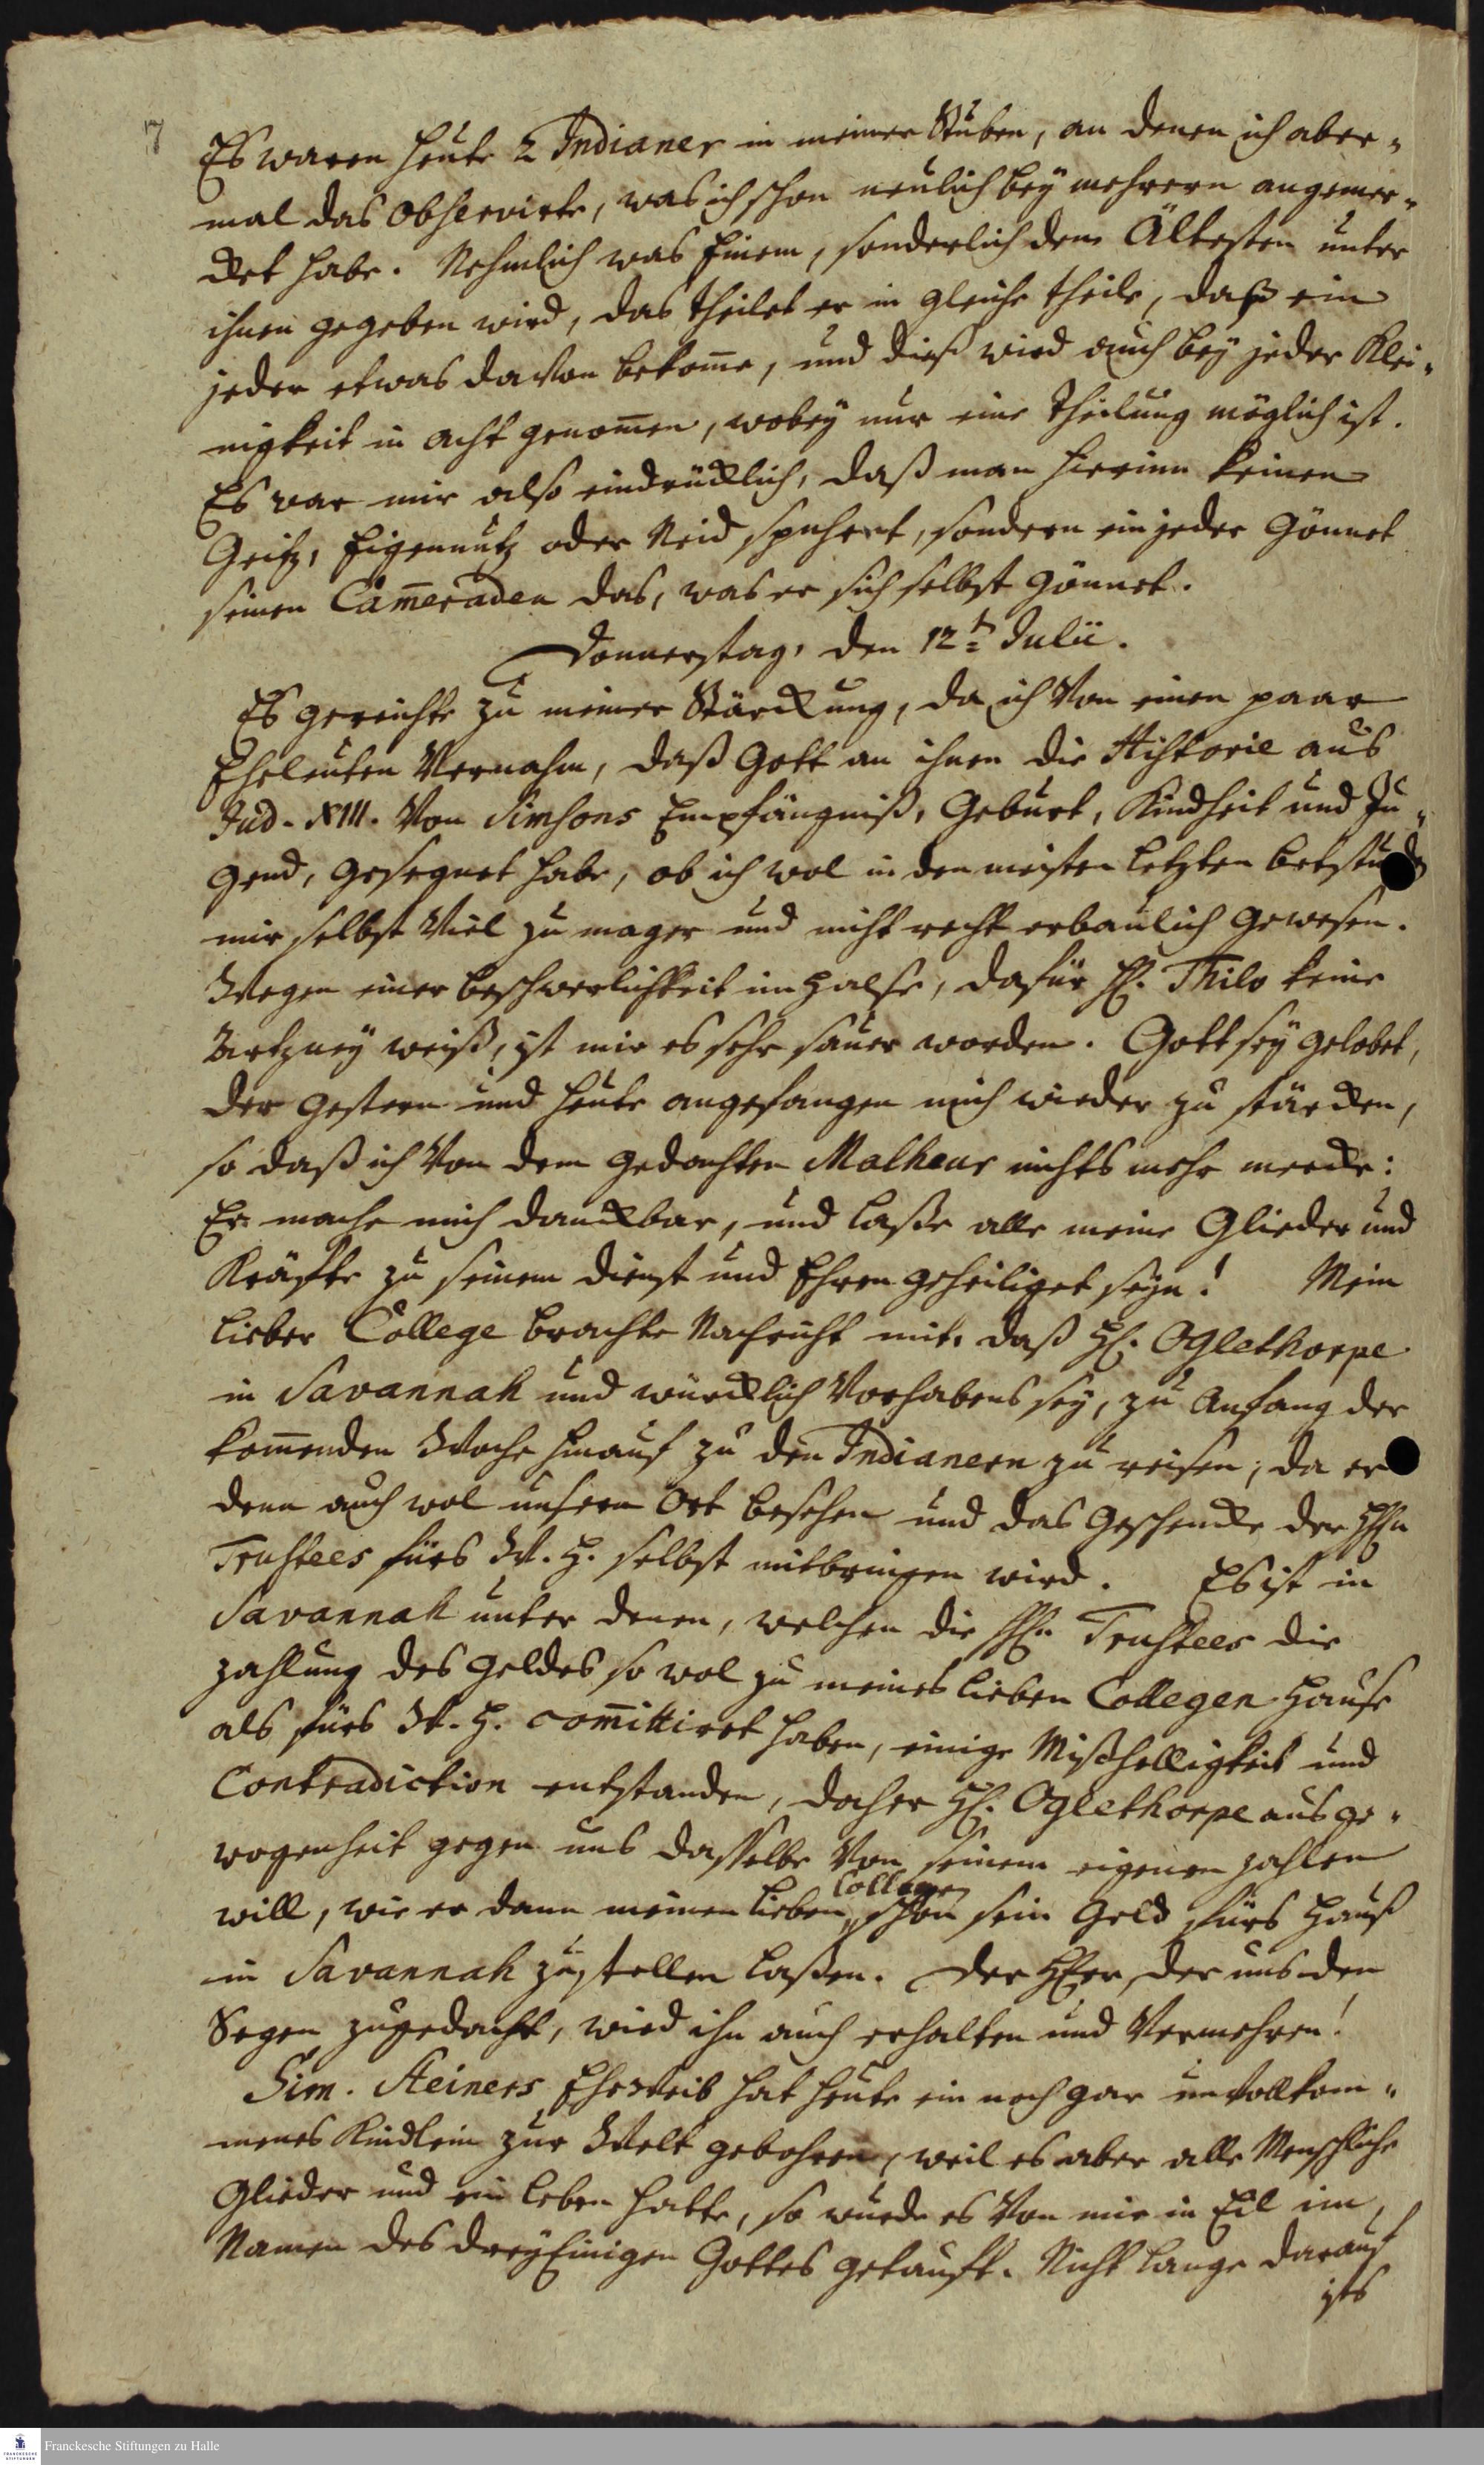 7
Es waren heute 2 Indianer in meiner Stuben, an denen ich aber-
mal das observirte, was ich schon neulich bey mehrern angemer-
cket habe. Nehmlich was Einem, sonderlich dem Ältesten unter
ihnen gegeben wird, das theilet er in gleiche theile, daß ein
jeder etwas davon bekom̄e, und dieß wird auch bey jeder Klei-
nigkeit in acht genom̄en, wobey nur eine Theilung möglich ist.
Es war mir also eindrücklich, daß man hierinn keinen
Geitz, Eigennutz oder Neid spühret, sondern ein jeder gönnet
seinen Cam̄eraden das, was er sich selbst gönnet.
Donnerstag, den 12t Julii.
Es gereichte zu meiner Stärckung, da ich von einen paar
Eheleuten vernahm, daß Gott an ihnen die Historie aus
Jud. XIII. von Simsons Empfängniß, Geburt, Kindheit und Ju-
gend, gesegnet habe, ob ich wol in den meisten letzten betstund
mir selbst viel zu mager und nicht recht erbaulich gewesen.
Wegen einer beschwerlichkeit im Halse, dafür H. Thilo keine
Artzney weiß, ist mir es sehr sauer worden. Gott sey gelobet,
der gestern und heute angefangen mich wieder zu stärcken,
so daß ich von dem gedachten Malheur nichts mehr mercke:
Er mache mich danckbar, und laße alle meine Glieder und
Kräffte zu seinem Dienst und Ehren geheiliget seyn! Mein
lieber College brachte Nachricht mit, daß H. Oglethorpe
in Savannah und würcklich Vorhabens sey, zu Anfang der
kom̄enden Woche hinauf zu den Indianern zu reisen; da er
denn auch wol unsern Ort besehen und das Geschencke der HHn
Trustees fürs W. H. selbst mitbringen wird. Es ist in
Savannah unter denen, welchen die HHn Trustees die
zahlung des Geldes so wol zu meines lieben Collegen Hause
als fürs W. H. com̄ittiret haben, einige Mißhelligkeit und
Contradiction entstanden, daher H. Oglethorpe aus ge-
wogenheit gegen uns dasselbe von seinem eigenen zahlen
will, wie er dann meinen lieben Collegen schon sein Geld fürs Hauß
in Savannah zustellen laßen. Der HErr, der uns den
Segen zugedacht, wird ihn auch erhalten und vermehren!
Sim. Steiners Eheweib hat heute ein noch gar unvollkom-
menes Kindlein zur Welt gebohren, weil es aber alle Menschliche
Glieder und ein Leben hatte, so wurde es von mir in Eil im
Namen des dreyEinigen Gottes getaufft. Nicht lange darauf
ists
Franckesche Stiftungen zu Halle